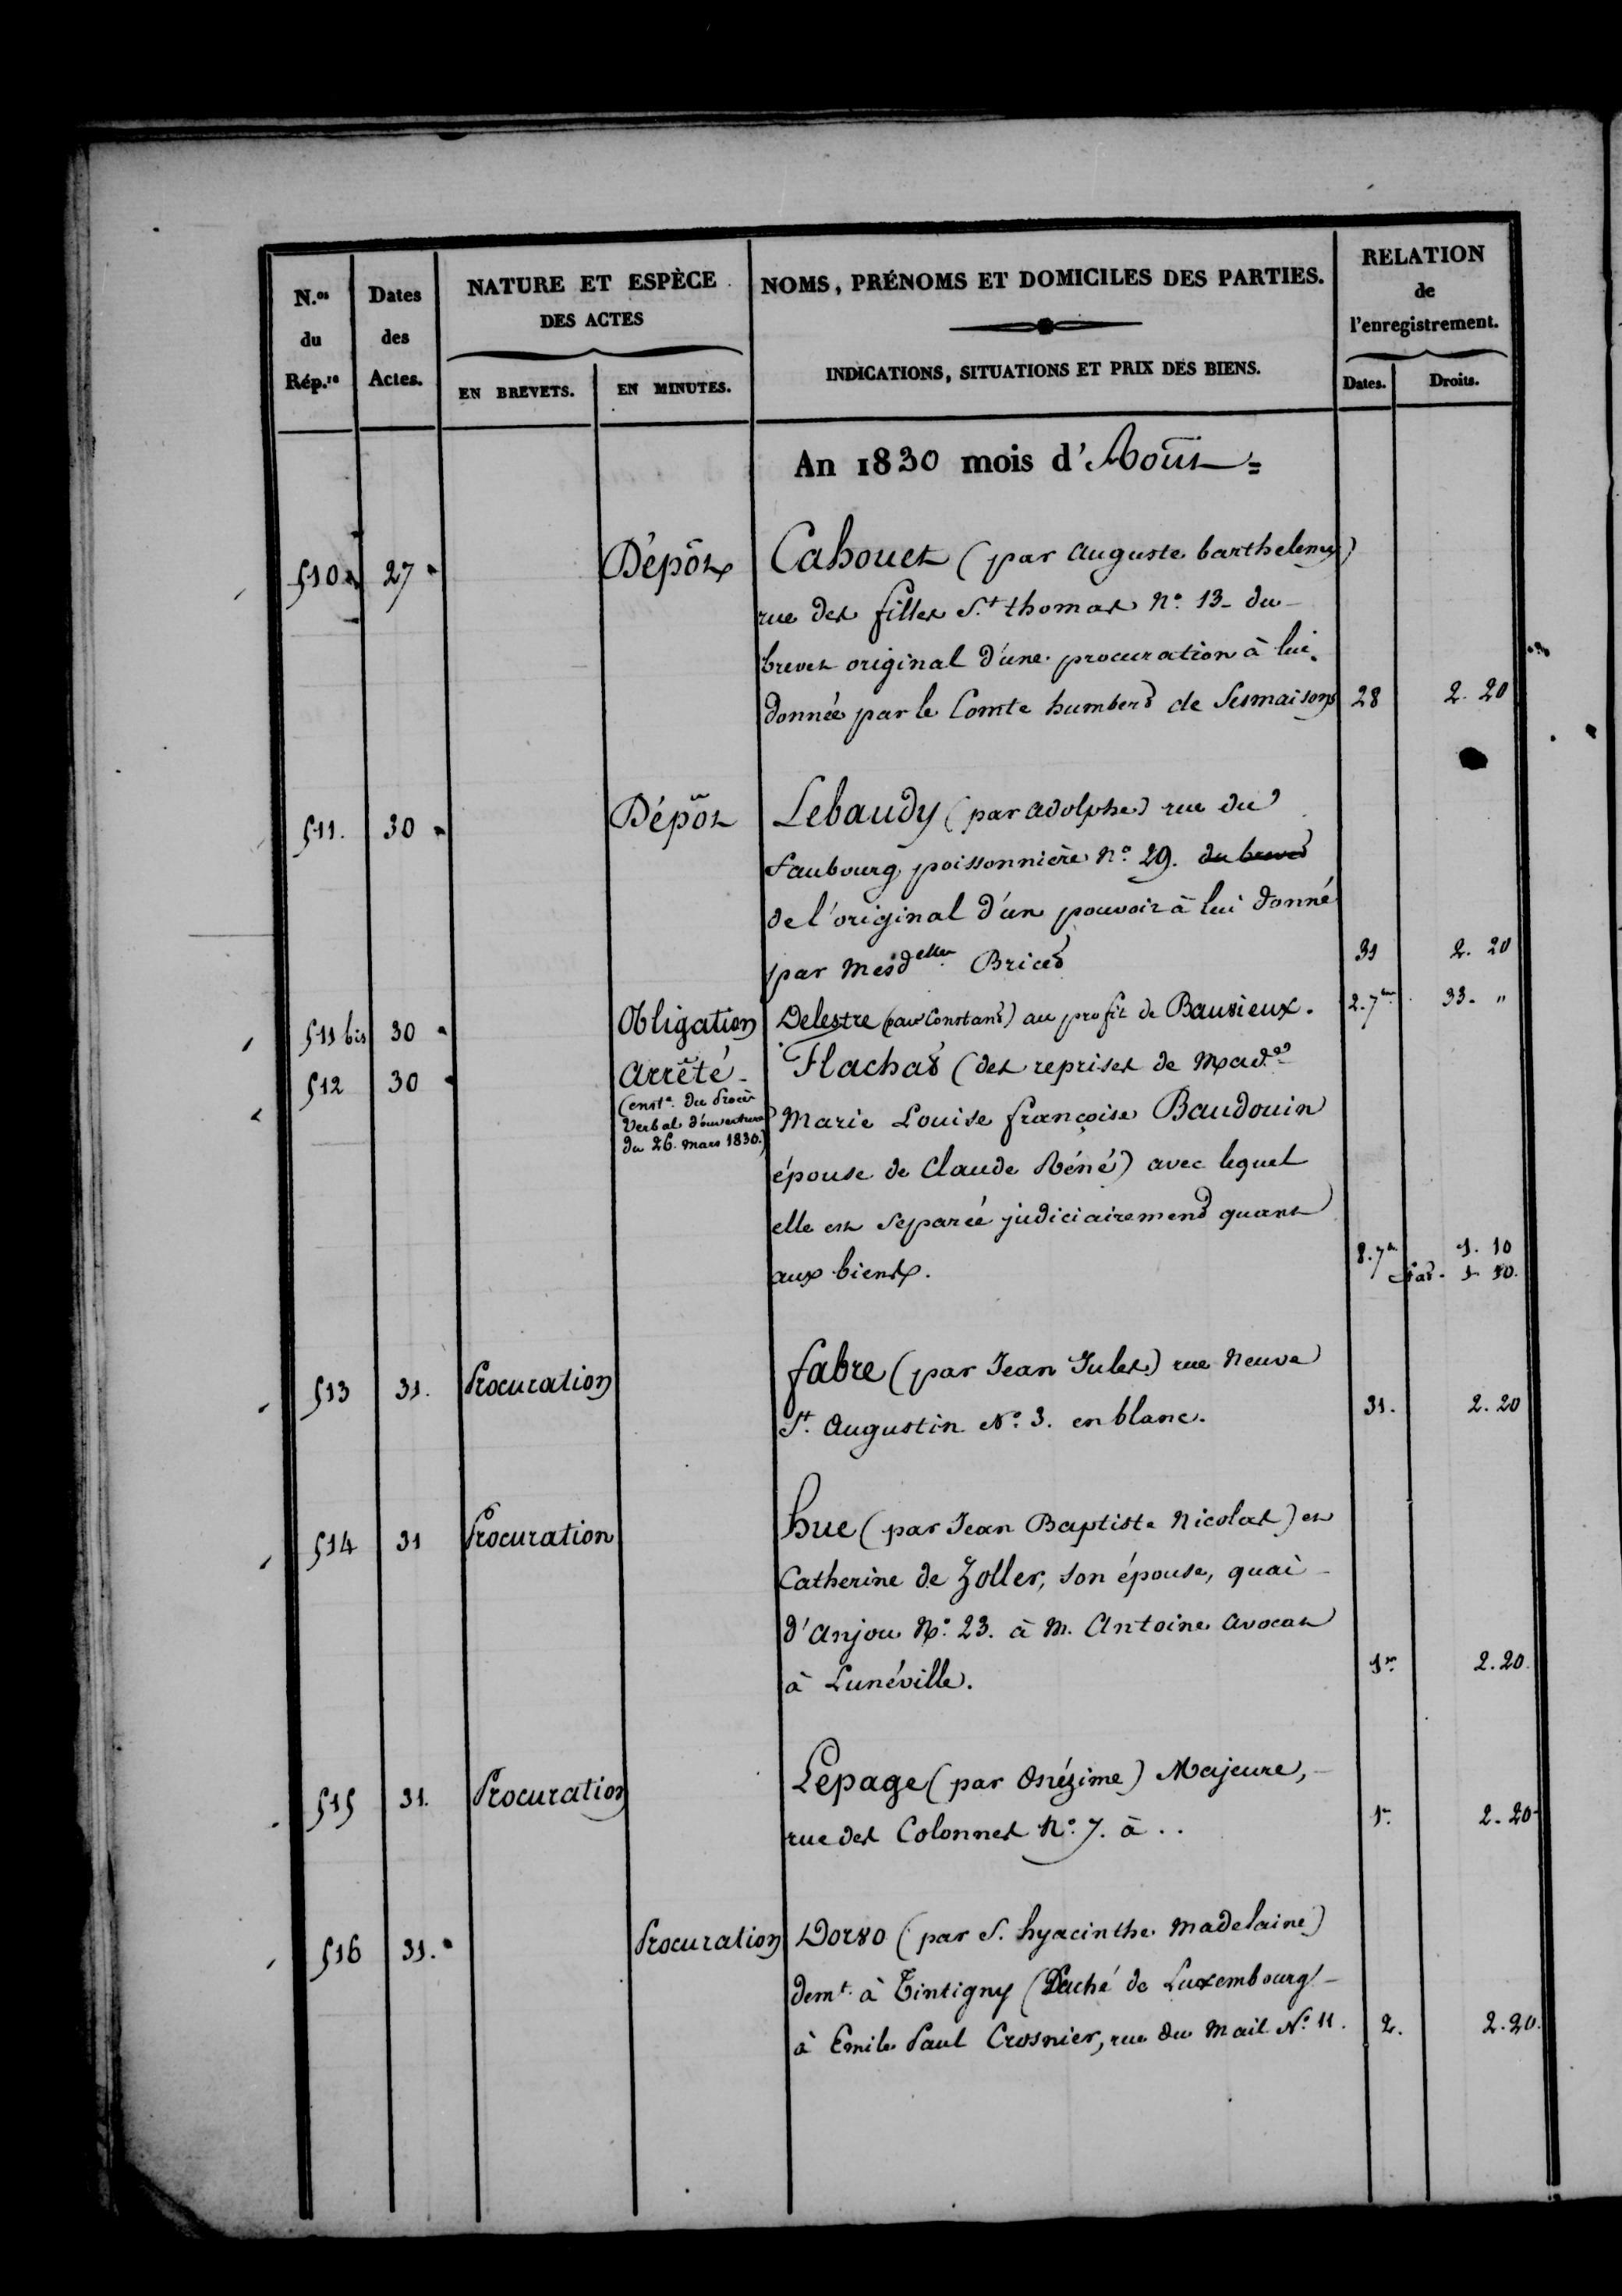 N.os du Rép.re
Dates des Actes.
NATURE ET ESPÈCE DES ACTES
EN BREVETS.
EN MINUTES.
NOMS, PRÉNOMS ET DOMICILES DES PARTIES.
INDICATIONS, SITUATIONS ET PRIX DES BIENS.
RELATION de l'enregistrement.
Dates.
Droits.
An 1830 mois d'Août =
510 27 Dépôt Cahouet (par Auguste barthelemy)
rue des filles St thomas No. 13 - du
brevet original d'une procuration à lui
donnée par le Comte humbert de Sesmaisons 28 2. 20
511. 30 Dépôt Lebaudy (par adolphe) rue du
faubourg poissonnière No. 29. du brevet
de l'original d'un pouvoir à lui donné
par Mesdelles Brices 31 2. 20
511 bis 30 Obligation Delestre (par Constant) au profit de Bausieux. 2. 7bre 33. "
512 30 Arrêté - Flachat (des reprises de Made
(enste du Procès
Verbal d'ouverture
du 26. mars 1830.)
Marie Louise françoise Baudouin
épouse de Claude Réné) avec lequel
elle est séparée judiciairement quant
aux biens. 8. 7bre 1. 10
1. 10.
513 31. Procuration fabre (par Jean Jules) rue Neuve
St. Augustin No. 3. en blanc. 31. 2. 20
514 31 Procuration hue (par Jean Baptiste Nicolas) et
Catherine de Zoller, son épouse, quai
d'Anjou No. 23. à M. Antoine avocat
à Lunéville. 1er 2. 20.
515 31. Procuration Lepage (par Onézime) Majeure,
rue des Colonnes No. 7. à .. 1er 2. 20
516 31. Procuration Dorvo (par S. hyacinthe Madelaine)
demt. à Tintigny (Duché de Luxembourg)
à Emile Paul Crosnier, rue du Mail No. 11. 2. 2. 20.